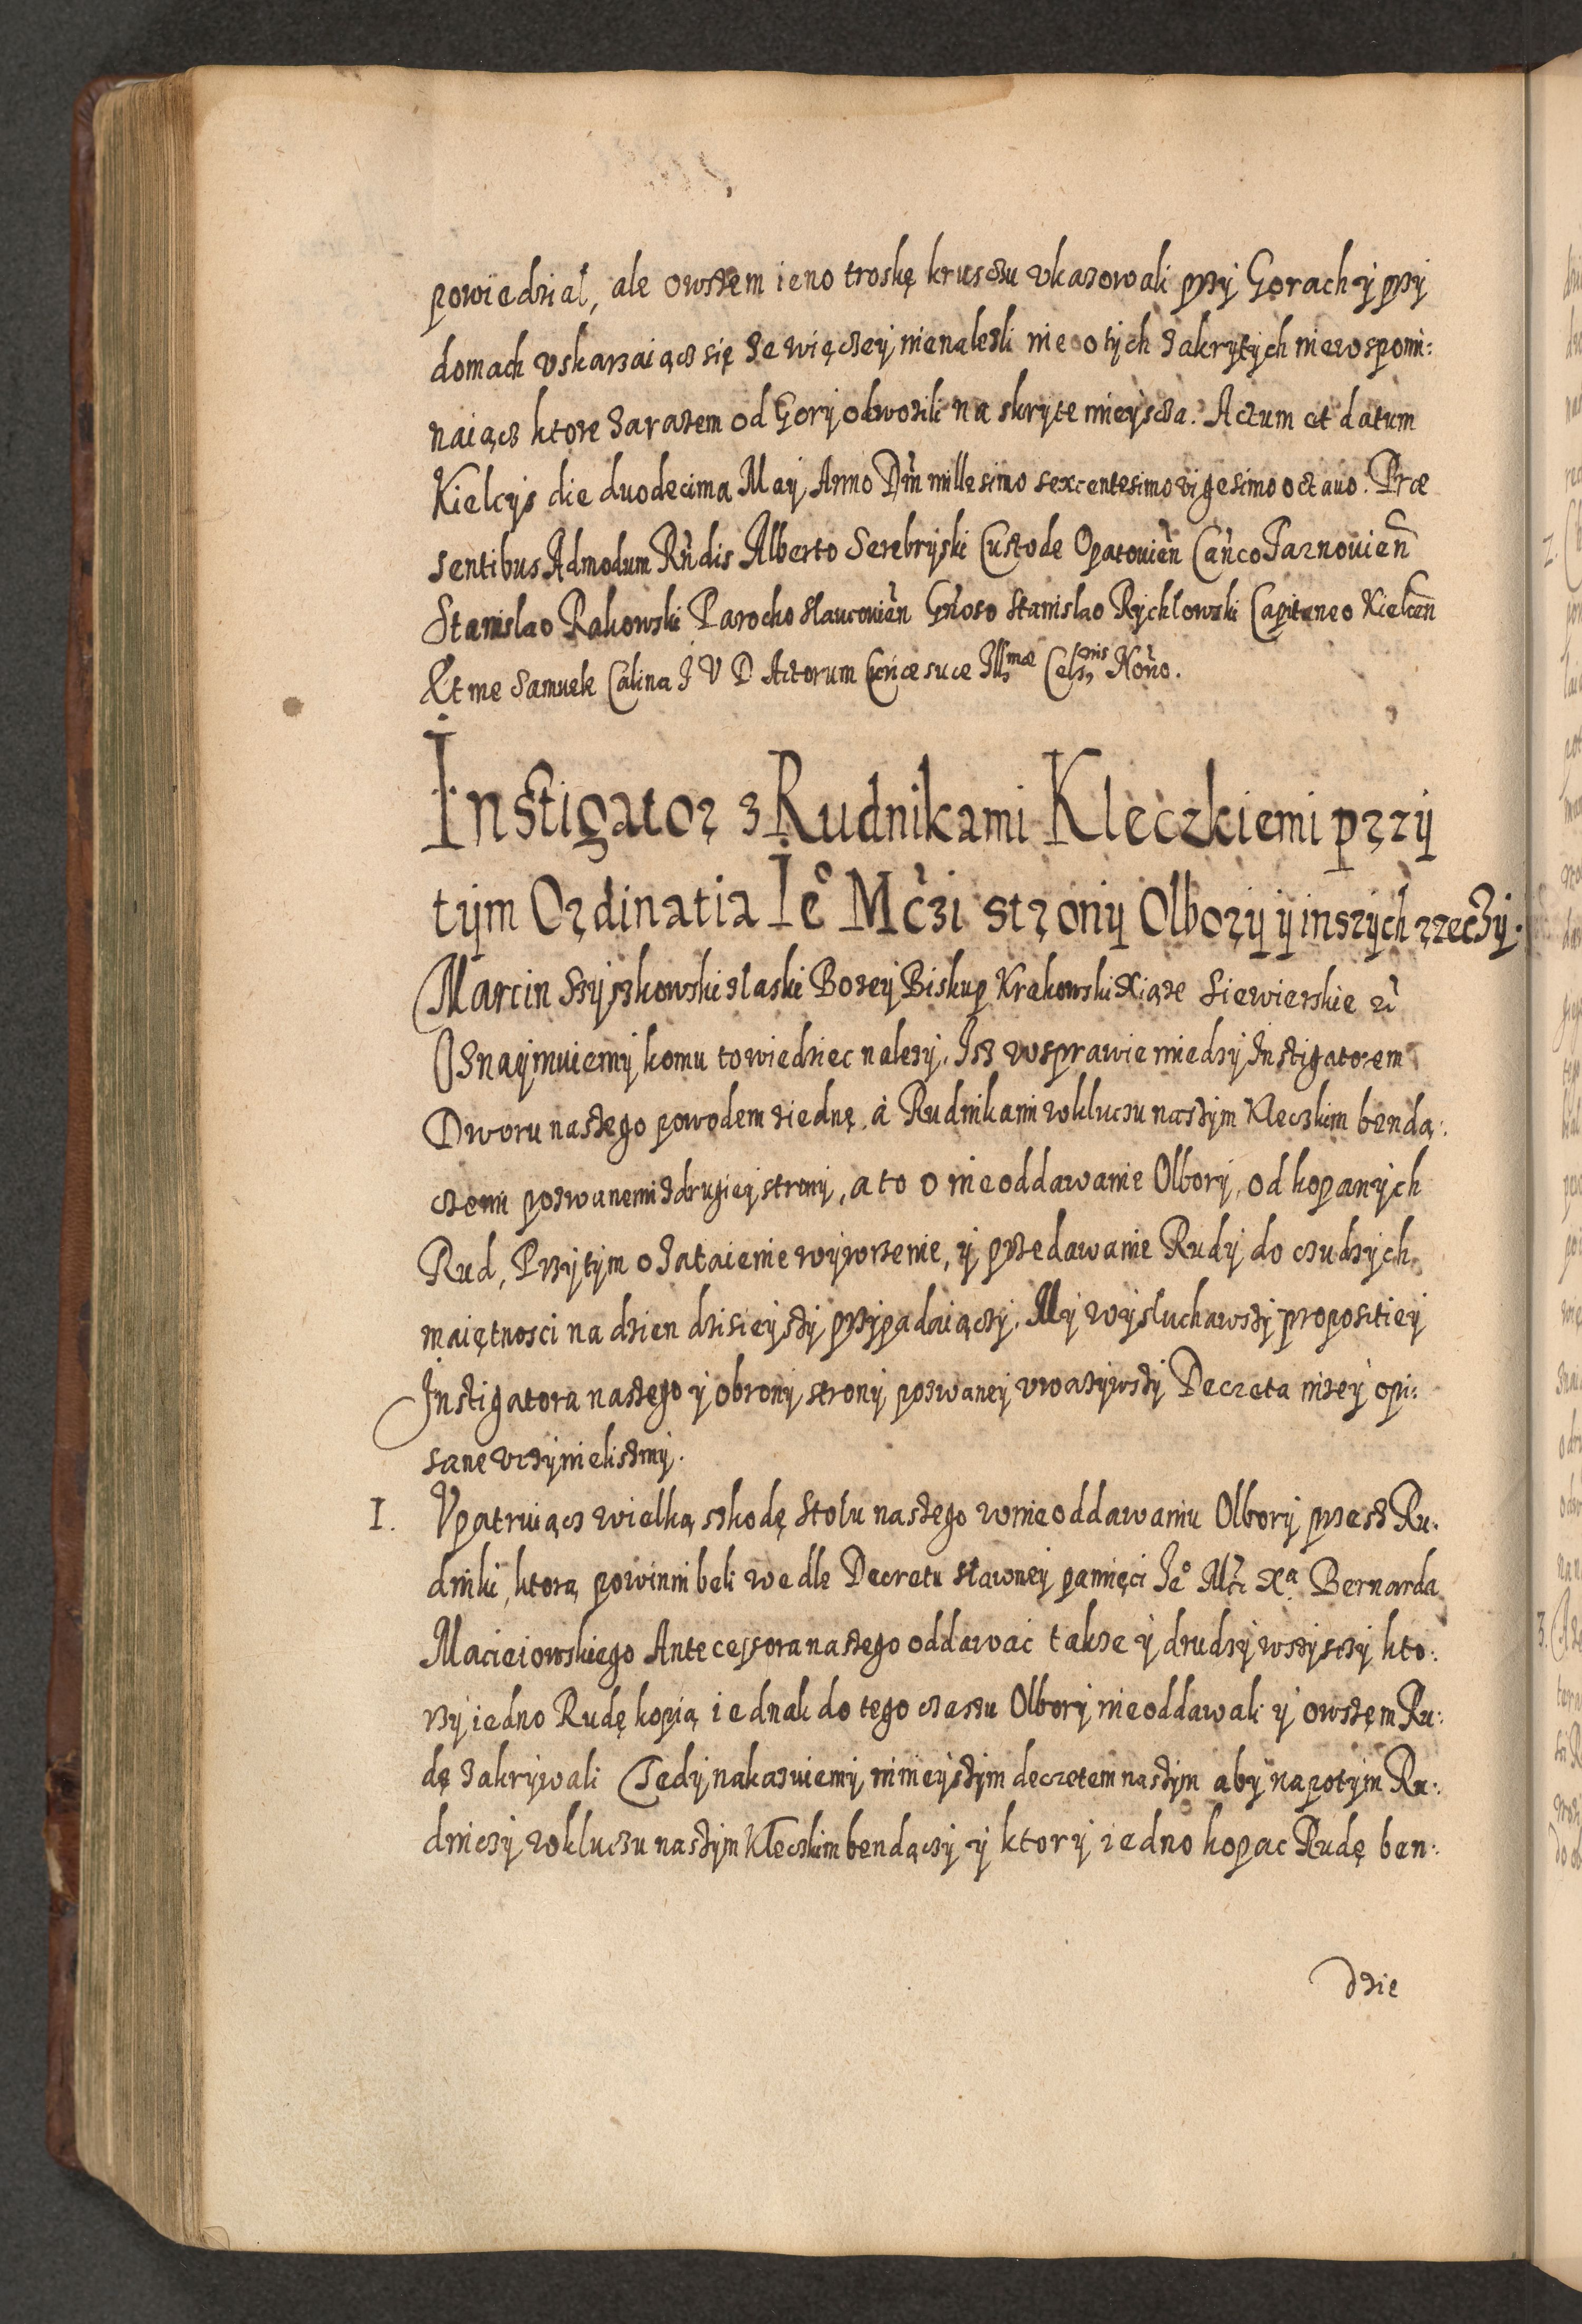 powiedział, ale owszem ieno troskę kruszczu vkazowali przÿ Gorach ÿ przÿ
domach vskarzaiącz się że więczeÿ nienalezli nie o tÿch zakrÿtÿch niewspomi:
naiącz ktore zarazem od Gorÿ odwozili na skryte mieÿscza. Actum et datum
Kielcÿs die duodecima Maÿ Anno Dñi millesimo sexcentesimo vigesimo octauo. Præ
sentibus Admodum Rñdis Alberto Serebrÿski Custode Opatouień Cańco Tarnouień
Stanislao Rakowski Parocho Slaucouień Gñoso Stanislao Rÿchłowski Capitaneo Kielceń
Et me Samuele Calina J V D Actorum Cuńæ suæ Illmæ Celsnis Nońo.
Instigator z Rudnikami Kleczkiemi przÿ
tÿm Ordinatia Ieº Mczi stronÿ Olborÿ ÿ inszÿch rzeczÿ.
Marcin Szÿszkowski z łaski Bozeÿ Biskup Krakowski Xiąze Siewierskie &c
Oznaÿmuiemÿ komu to wiedziec nalezÿ. Isz w sprawie miedzÿ Instigatorem
Dworu naszego powodem z iednę. à Rudnikami w kluczu naszÿm Kleczkim benda:
czemi pozwanemi z drugieÿ stronÿ, a to o nieoddawanie Olborÿ, od kopanÿch
Rud, Przÿ tÿm o zataienie wÿwozenie, ÿ przedawanie Rudÿ do czudzÿch
maiętnosci na dzien dzisieÿszÿ przÿpadaiączÿ. Mÿ wÿsłuchawszÿ propositieÿ
Instigatora naszego ÿ obronÿ stronÿ pozwaneÿ vwazÿwszÿ Decreta nizeÿ opi:
sane vczÿnielismÿ.
I. Vpatruiącz wielką szkodę Stołu naszego w nieoddawaniu Olborÿ przesz Ru:
dniki, ktorą powinni beli wedle Decretu sławneÿ pamięci Jeº Mczi Xa Bernarda
Macieiowskiego Antecessora naszego oddawać takze ÿ drudzÿ wszÿsczÿ kto:
rzÿ iedno Rudę kopią iednak do tego czasu Olborÿ nieoddawali ÿ owszem Ru:
dę zakrÿwali Tedÿ nakazuiemÿ ninieÿszÿm decretem naszÿm abÿ na potÿm Ru:
dniczÿ w kluczu naszÿm Kleczkim bendączÿ ÿ ktorÿ iedno kopac Rudę ben:
dzie